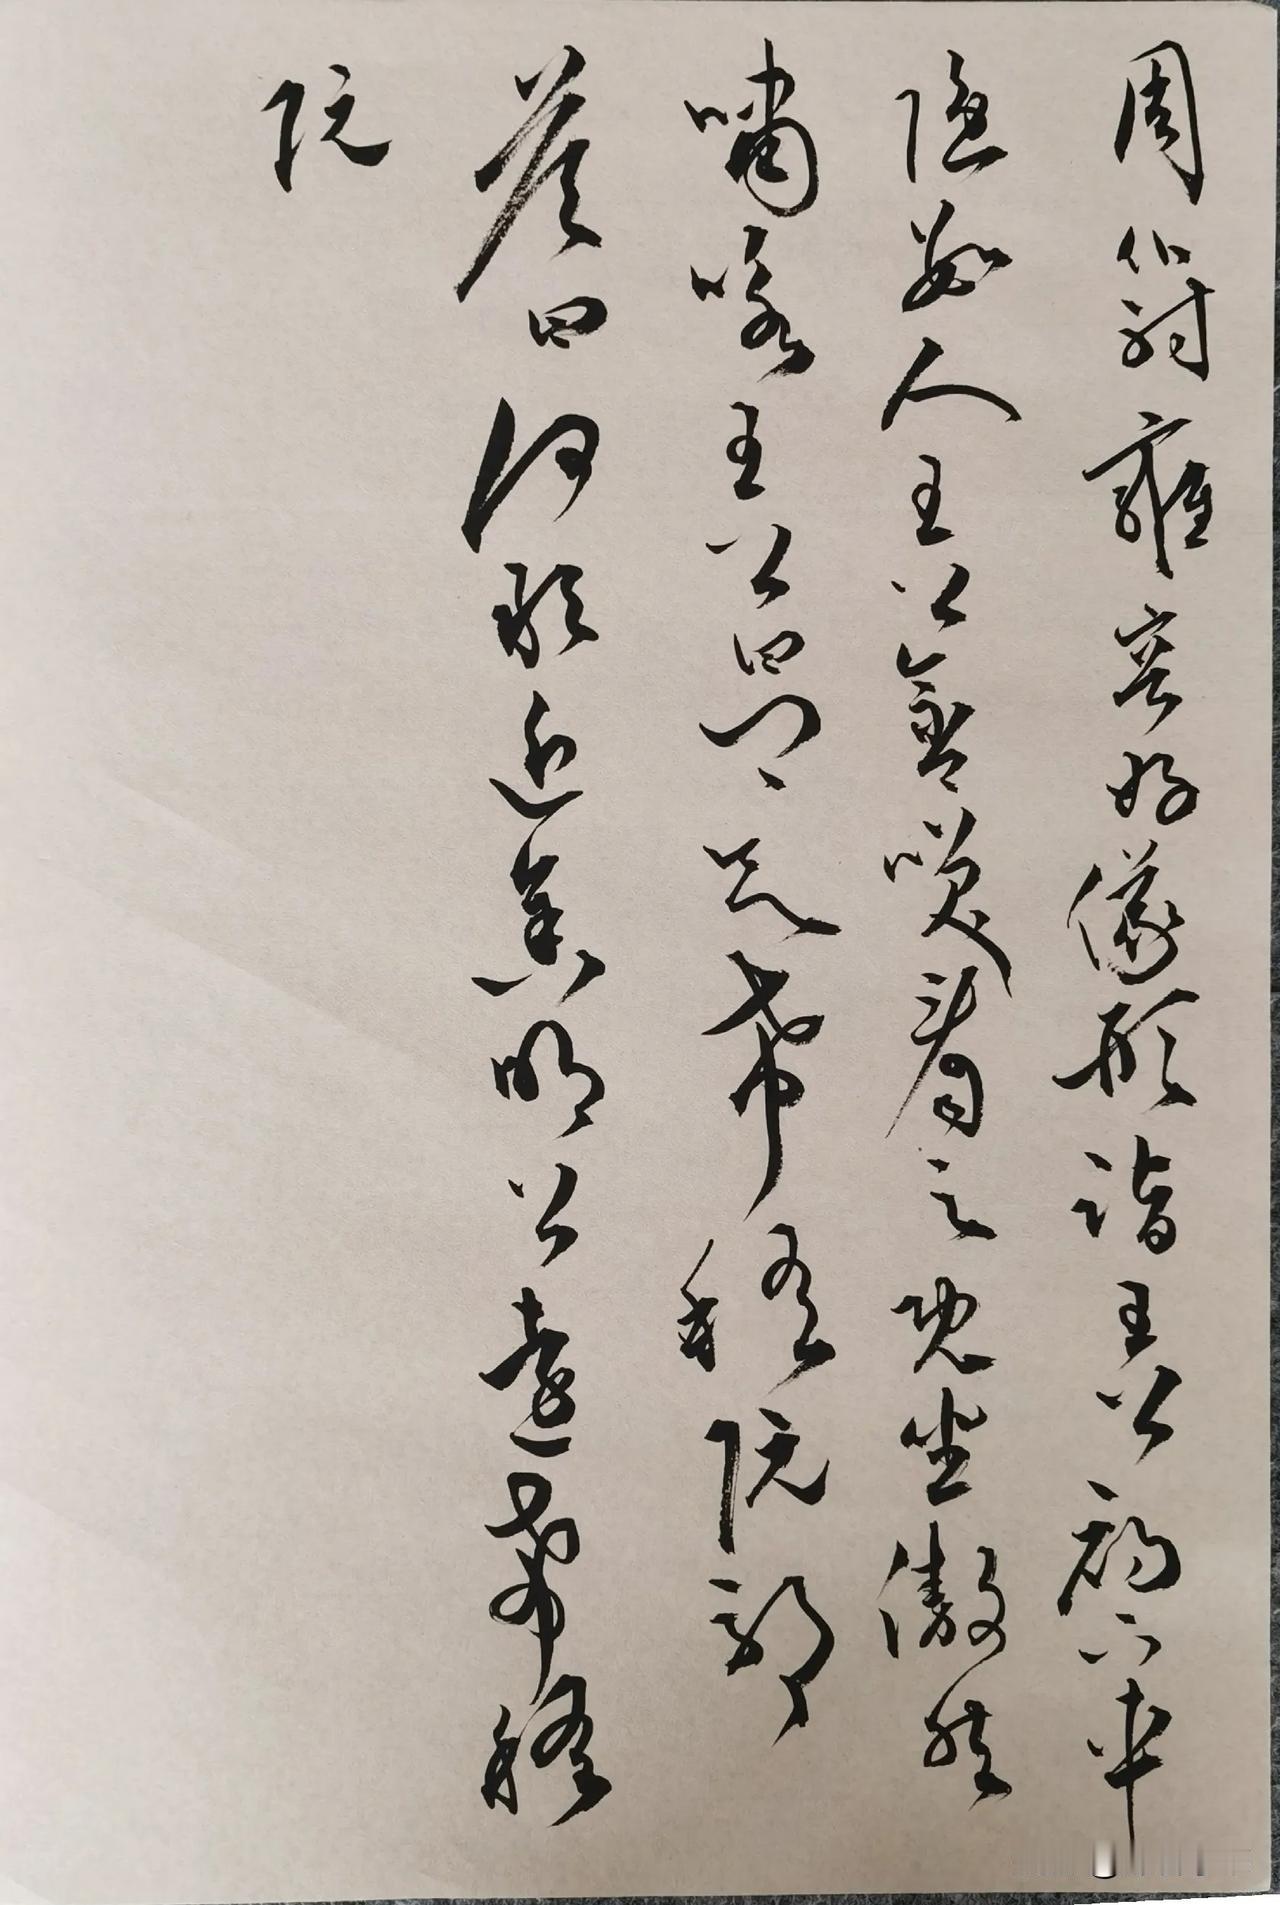 周仆射雍容好仪形诣王公初下车
隐数人王公含笑看之既坐傲然
啸咏王公曰卿欲希嵇阮邪
答曰何敢近舍明公远希嵇
阮